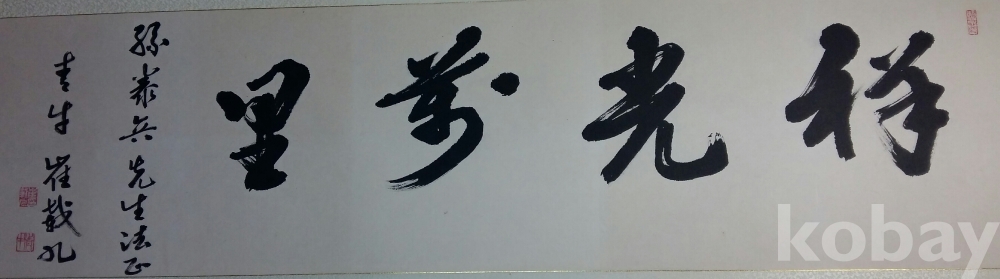 祥光萬里
孫泰兵先生法正
青牛 崔載孔
kobay